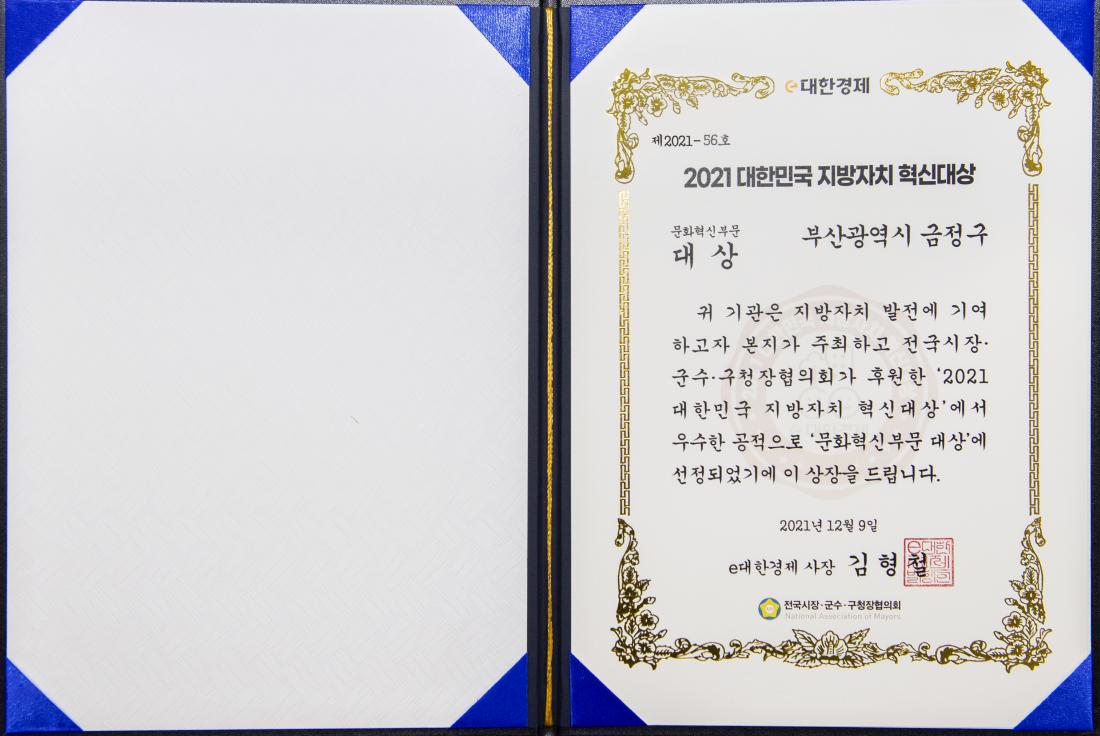 e대한경제
제2021-56호
2021 대한민국 지방자치 혁신대상
문화혁신부문
대 상
부산광역시 금정구
귀 기관은 지방자치 발전에 기여
하고자 본지가 주최하고 전국시장·
군수·구청장협의회가 후원한 ‘2021
대한민국 지방자치 혁신대상’에서
우수한 공적으로 ‘문화혁신부문 대상’에
선정되었기에 이 상장을 드립니다.
2021년 12월 9일
e대한경제 사장 김 형 철
전국시장·군수·구청장협의회
National Association of Mayors